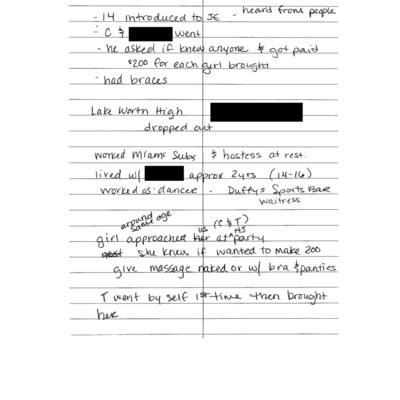 - 14 introduced to JE - heard from people
- C & went
- he asked if knew anyone & got paid
$200 for each girl brought
- had braces
Lake Worth High
dropped out
worked Miami Subs & hostess at rest.
lived w/ approx 2yrs (14-16)
worked as dancer - Duffy's Sports Bar
waitress
around same age
us (C & T) HS
girl approached her at ^ party
she knew if wanted to make 200
give massage naked or w/ bra & panties
T went by self 1st time then brought
her